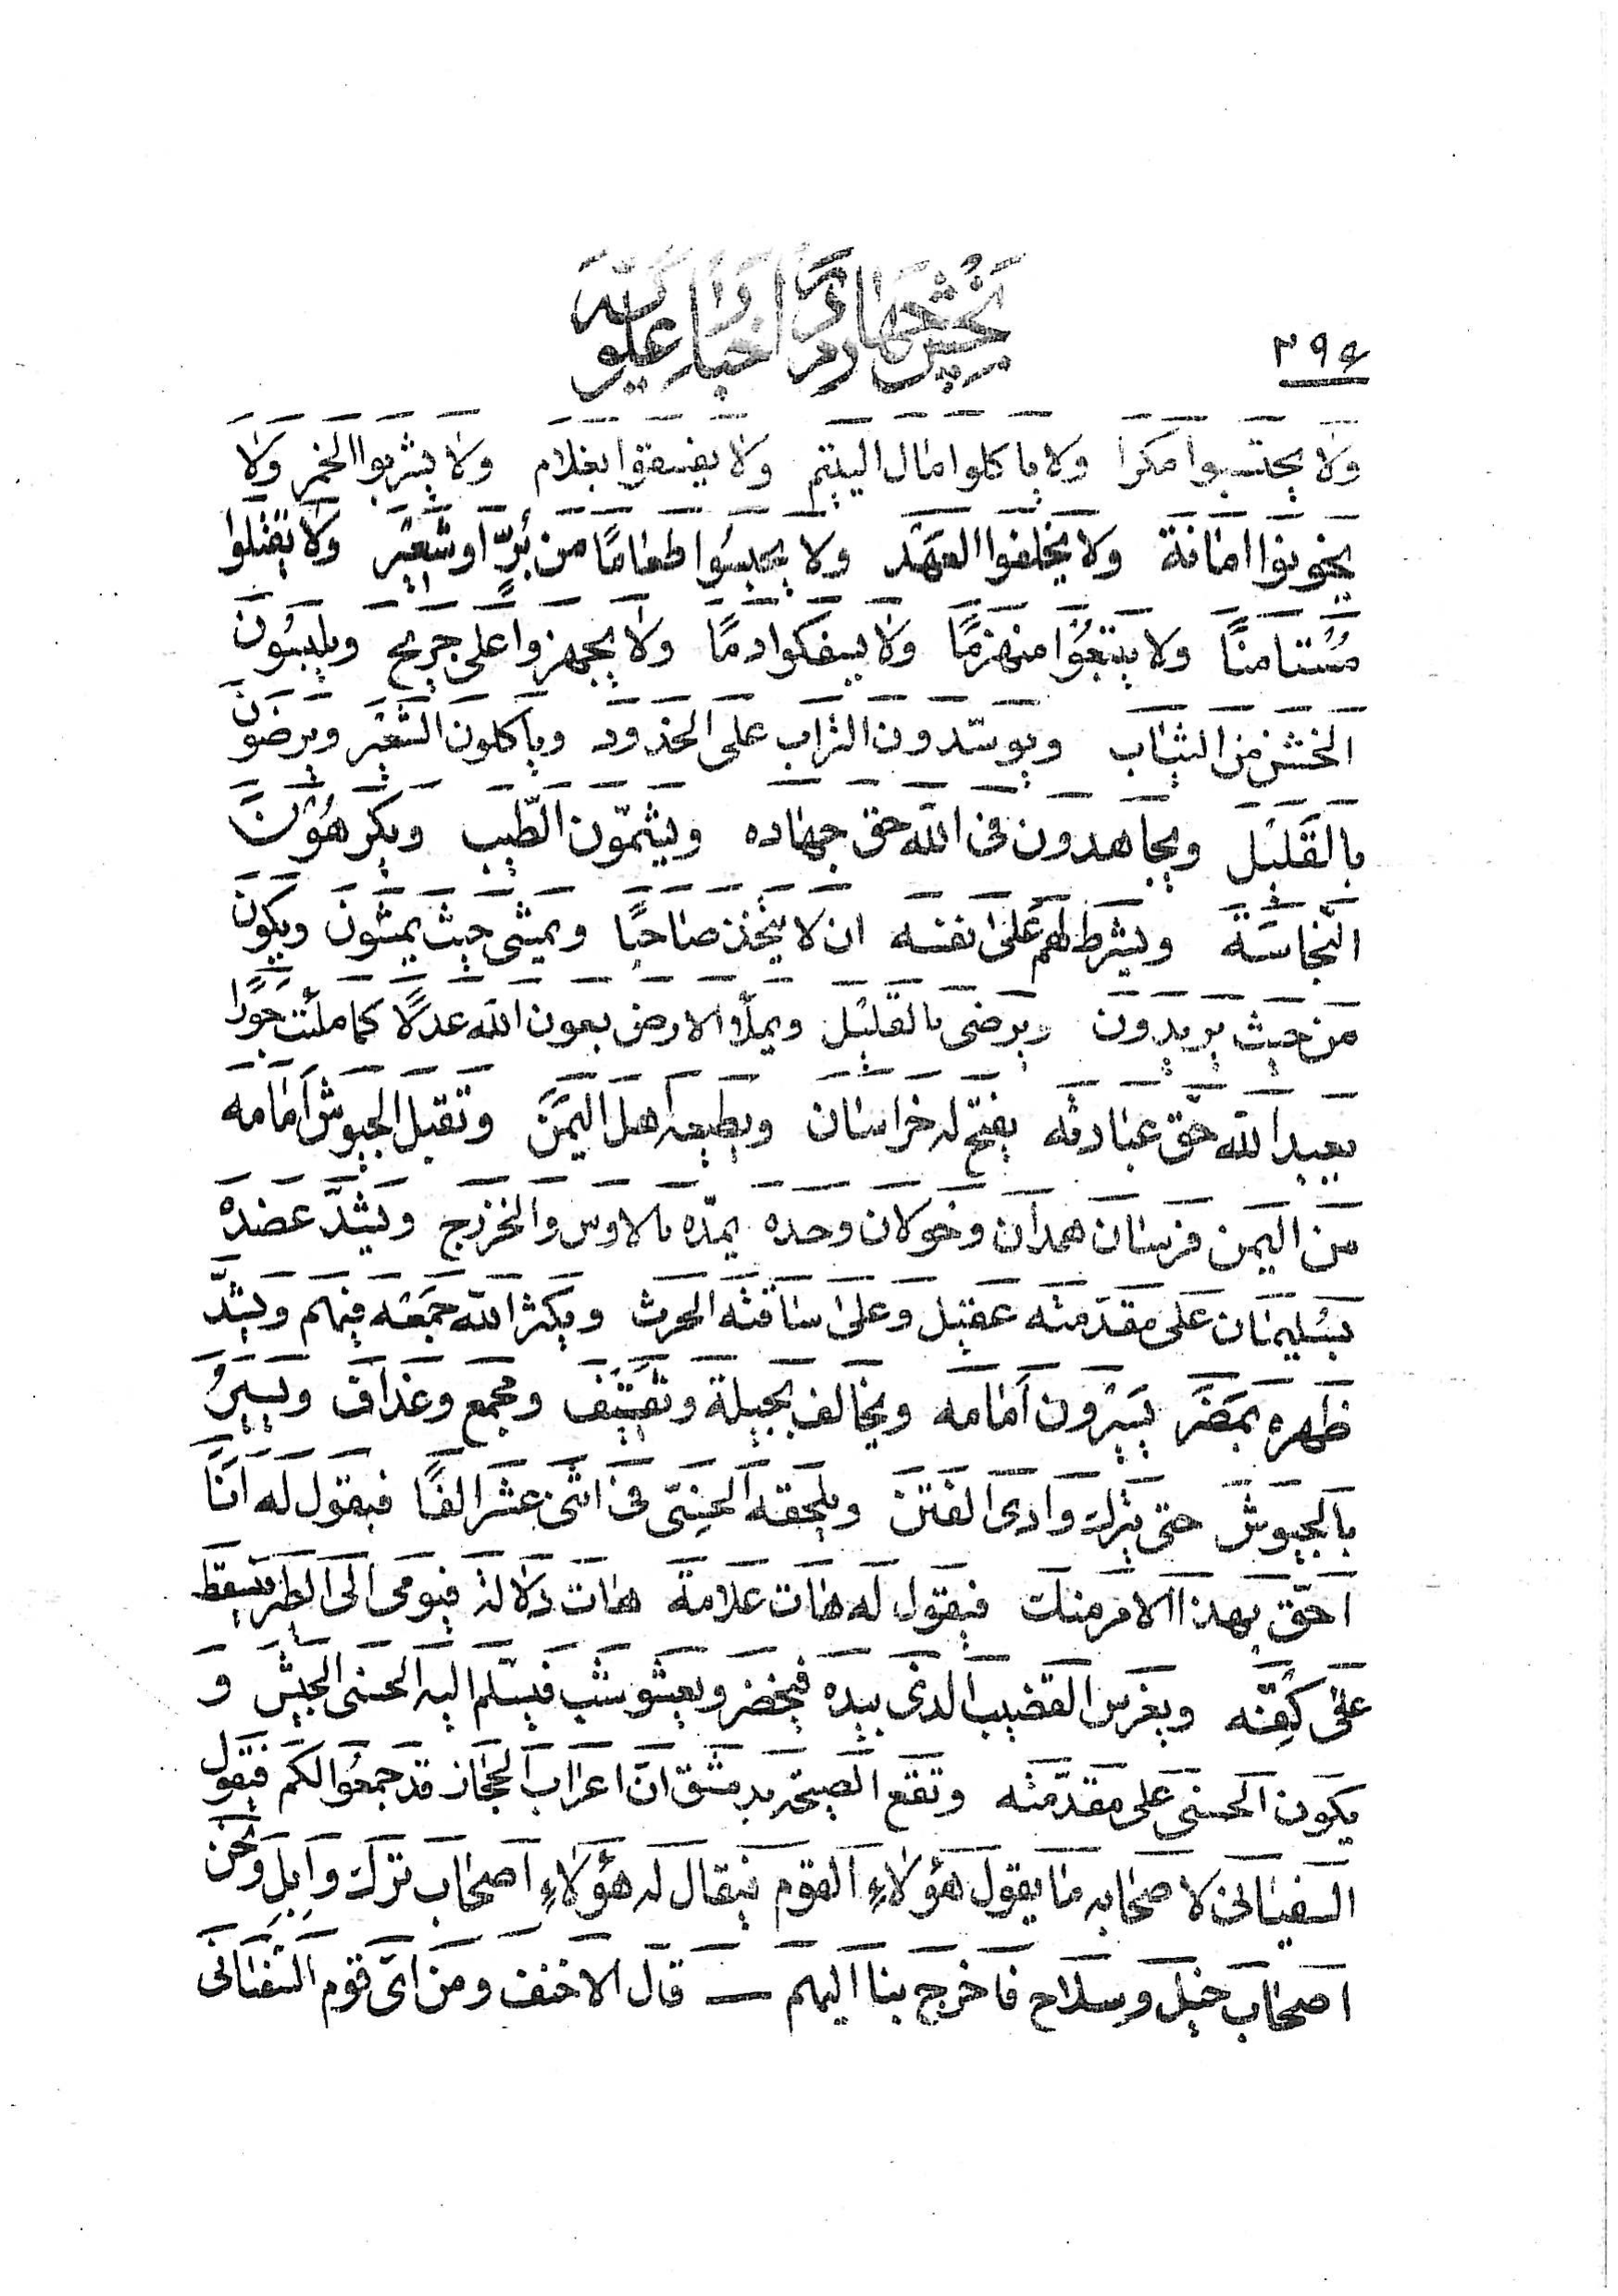 بخش چهارم در اخبار علویه
۲۹۴
ولا يجتنبوا مكرا ولا ياكلوا مال اليتيم ولا يفسقوا بغلام ولا يشربوا الخمر ولا
يخونوا امانة ولا يخلفوا العهد ولا يحبسوا طعامًا من بُرٍّ او شعيرٍ ولا يقتلوا
مُستامنًا ولا يتبعُوا منهزمًا ولا يسفكوا دمًا ولا يجهزوا على جريح ويلبسُون
الخشن من الثياب ويوسّدون التراب على الخدود وياكلون الشعير ويرضون
بالقليل ويجاهدون فى الله حق جهاده ويشمّون الطّيب ويكرهُون
النّجاسة ويشرط لهم على نفسه ان لا يتّخذ صاحبًا ويمشى حيث يمشون ويكون
من حيث يريدون ويرضى بالقليل ويملأ الارض بعون الله عدلًا كما ملئت جورًا
يعبد الله حقّ عبادته يفتح له خراسان ويطيعه اهل اليمن وتقبل الجيوش امامه
من اليمن فرسان همدان وخولان وحده يمدّه بالاوس والخزرج ويشدّ عضده
بسُليمان على مقدّمته عقيل وعلى ساقته الحرث ويكثر الله جمعه فيهم ويشدّ
ظهره بمضر يسيرون امامه ويخالف بجيلة وثقيف ومجمع وغداف ويسيرُ
بالجيوش حتى ينزل وادى الفتن ويلحقه الحسنى فى اثنى عشر الفًا فيقول له انا
احقّ بهذا الامر منك فيقول له هات علامة هات دلالة فيومى الى الطير فيسقط
على كتفه ويغرس القضيب الذى بيده فيخضر ويعشوشب فيسلّم اليه الحسنى الجيش و
يكون الحسنى على مقدّمته وتقع الصيحة بدمشق انّ اعراب الحجاز قد جمعُوا لكم فيقول
السفيانى لاصحابه ما يقول هؤلاءِ القوم فيقال له هؤلاءِ اصحاب ترك وابلٍ ونحن
اصحاب خيل وسلاح فاخرج بنا اليهم — قال الاحنف ومن اىّ قوم السّفيانى